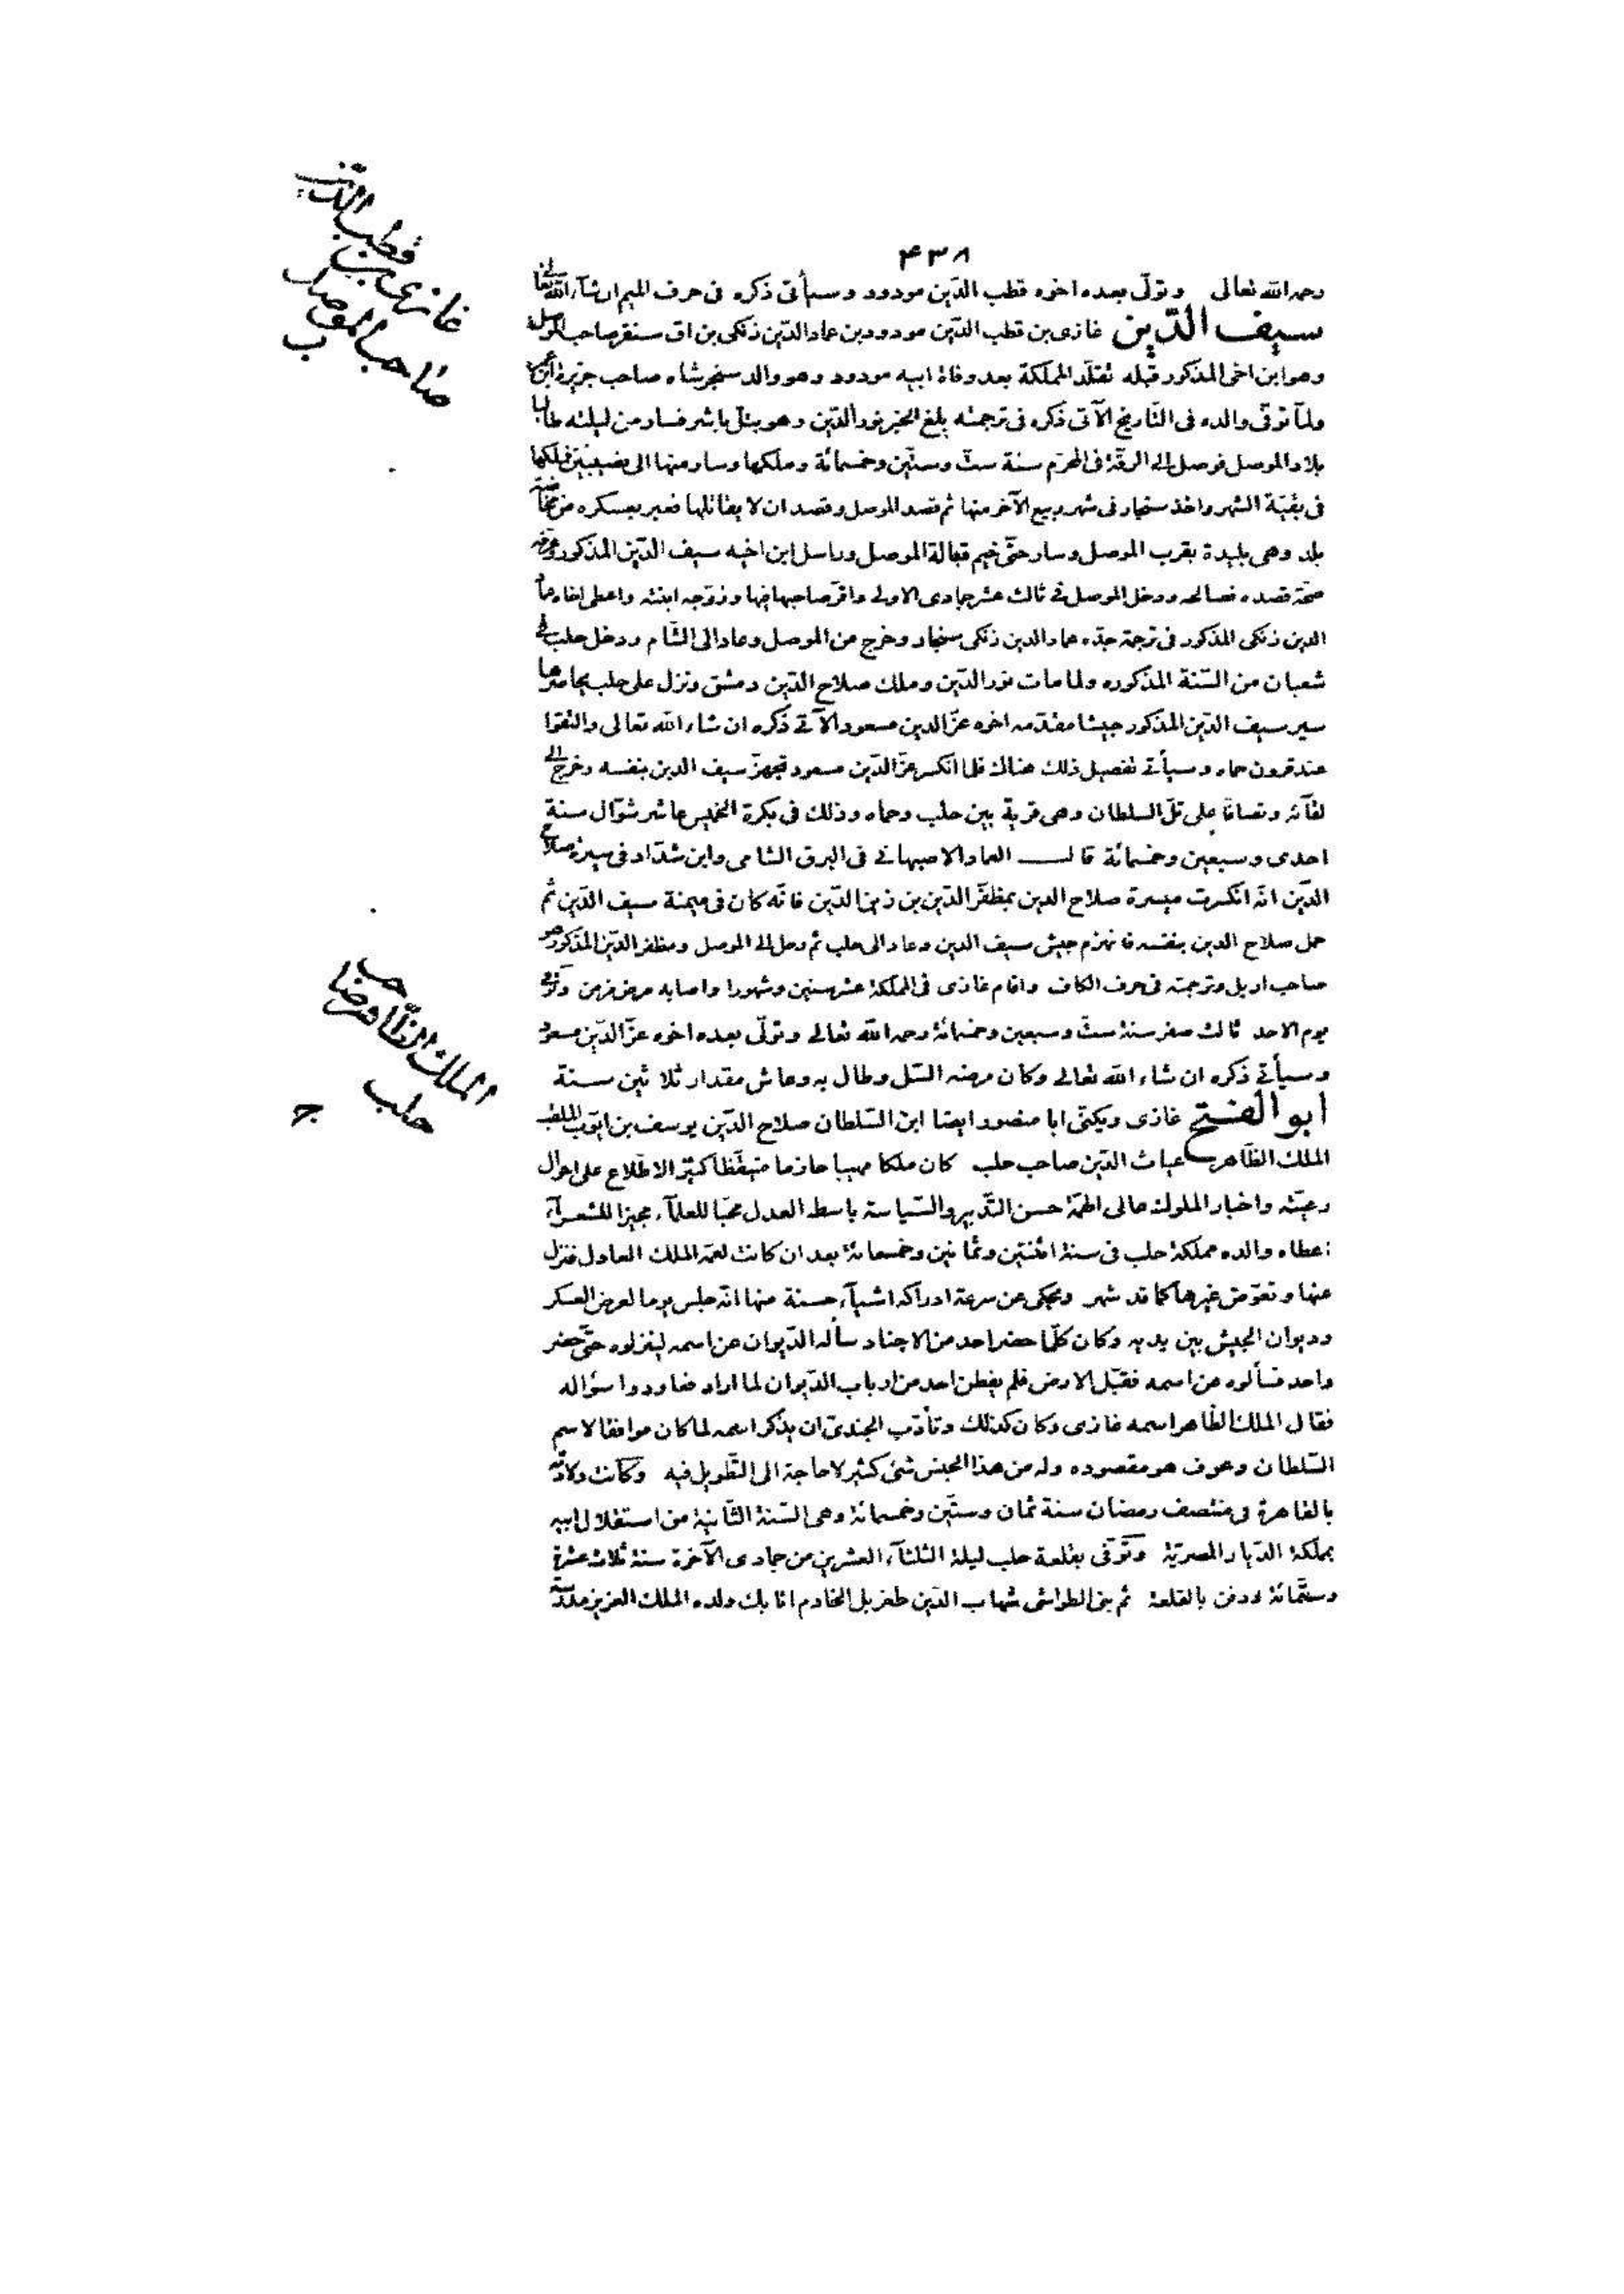 ۴۳۸
رحمه الله تعالى وتولّى بعده اخوه قطب الدّين مودود وسيأتى ذكره فى حرف الميم ان شآء الله تعالى
سيف الدّين غازى بن قطب الدّين مودود بن عماد الدّين زنكى بن اق سنقر صاحب الموصل
وهو ابن اخى المذكور قبله تقلّد المملكة بعد وفاة ابيه مودود وهو والد سنجر شاه صاحب جزيرة ابن عمر
ولمّا توفّى والده فى التّاريخ الآتى ذكره فى ترجمته بلغ الخبر نور الدّين وهو بتلّ باشر فسار من ليلته طالبا
بلاد الموصل فوصل الى الرقّة فى المحرّم سنة ستّ وستّين وخمسمائة وملكها وسار منها الى نصيبين فملكها
فى بقيّة الشهر واخذ سنجار فى شهر ربيع الآخر منها ثم قصد الموصل وقصد ان لا يقاتلها فعبر بعسكره من مخاضة
بلد وهى بليدة بقرب الموصل وسار حتّى خيم قبالة الموصل وراسل ابن اخيه سيف الدّين المذكور وعرفه
صحّة قصده فصالحه ودخل الموصل فى ثالث عشر جمادى الاولى واقرّ صاحبها فيها وزوّجه ابنته واعطى اخاه عماد
الدين زنكى المذكور فى ترجمة جدّه عماد الدين زنكى سنجار وخرج من الموصل وعاد الى الشّام ودخل حلب فى
شعبان من السّنة المذكوره ولما مات نور الدّين وملك صلاح الدّين دمشق ونزل على حلب يحاصرها
سير سيف الدّين المذكور جيشا مقدّمه اخوه عزّ الدين مسعود الآتى ذكره ان شاء الله تعالى والتقوا
عند قرون حماه وسيأتى تفصيل ذلك هناك فلما انكسر عزّ الدّين مسعود تجهزّ سيف الدين بنفسه وخرج الى
لقآئه وتصافّا على تلّ السلطان وهى قرية بين حلب وحماه وذلك فى بكرة الخميس عاشر شوّال سنة
احدى وسبعين وخمسمائة قال العماد الاصبهانى فى البرق الشامى وابن شدّاد فى سيرة صلاح
الدّين انّه انكسرت ميسرة صلاح الدين بمظفّر الدّين بن زين الدّين فانّه كان فى ميمنة سيف الدّين ثمّ
حمل صلاح الدين بنفسه فانهزم جيش سيف الدين وعاد الى حلب ثم رحل الى الموصل ومظفر الدّين المذكور هو
صاحب اربل وترجمته فى حرف الكاف واقام غازى فى المملكة عشر سنين وشهورا واصابه مرض مزمن وتوفى
يوم الاحد ثالث صفر سنة ستّ وسبعين وخمسمائة رحمه الله تعالى وتولّى بعده اخوه عزّ الدّين مسعود
وسيأتى ذكره ان شاء الله تعالى وكان مرضه السّل وطال به وعاش مقدار ثلاثين سنة
ابو الفتح غازى ويكنّى ابا منصور ايضا ابن السّلطان صلاح الدّين يوسف بن ايّوب الملقب
الملك الظّاهر غياث الدّين صاحب حلب كان ملكا مهيبا حازما متيقّظا كثير الاطّلاع على احوال
رعيّته واخبار الملوك عالى الهمّة حسن التّدبير والسّياسة باسط العدل محبّا للعلمآء مجيزا للشعرآء
اعطاه والده مملكة حلب فى سنة اثنتين وثمانين وخمسمائة بعد ان كانت لعمّه الملك العادل فنزل
عنها وتعوّض غيرها كما قد شهر ويحكى عن سرعة ادراكه اشيآء حسنة منها انّه جلس يوما لعرض العسكر
وديوان الجيش بين يديه وكان كلّما حضر احد من الاجناد سأله الدّيوان عن اسمه لينزلوه حتّى حضر
واحد فسألوه عن اسمه فقبّل الارض فلم يفطن احد من ارباب الدّيوان لما اراد فعاودوا سؤاله
فقال الملك الظّاهر اسمه غازى وكان كذلك وتأدّب الجندىّ ان يذكر اسمه لما كان موافقا لاسم
السّلطان وعرف هو مقصوده وله من هذا الجنس شئ كثير لا حاجة الى التّطويل فيه وكانت ولادته
بالقاهرة فى منتصف رمضان سنة ثمان وستّين وخمسمائة وهى السّنة الثّانية من استقلال ابيه
بمملكة الدّيار المصريّة وتوفّى بقلعة حلب ليلة الثلثآء العشرين من جمادى الآخرة سنة ثلاث عشرة
وستّمائة ودفن بالقلعة ثم بنى الطواشى شهاب الدّين طغربل الخادم اتابك ولده الملك العزيز مدرسة
غازى بن
قطب الدّين
صاحب الموصل
ب
الملك الظّاهر صاحب
حلب
ج